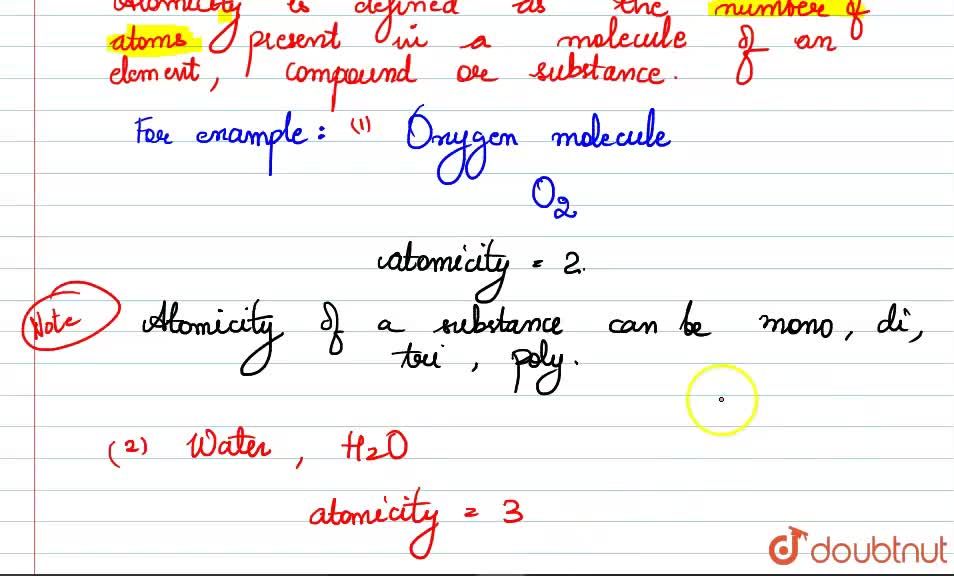 Atomicity is defined as the number of
atoms present in a molecule of an
element, compound or substance.
For example: (1) Oxygen molecule
O2
atomicity = 2.
Note Atomicity of a substance can be mono, di,
tri, poly.
(2) Water, H2O
atomicity = 3
doubtnut